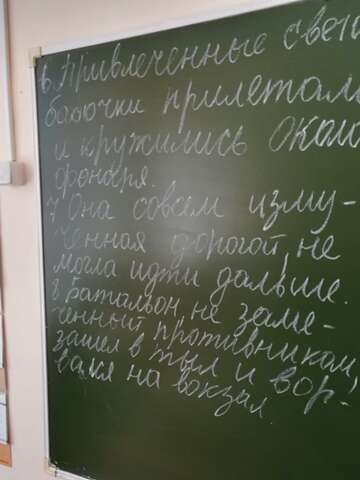 6. Привлеченные свето
бабочки прилетали
и кружились около
фонаря.
7. Она совсем изму-
ченная дорогой, не
могла идти дальше.
8. Батальон, не заме-
ченный противником,
зашел в тыл и вор-
вался на вокзал.